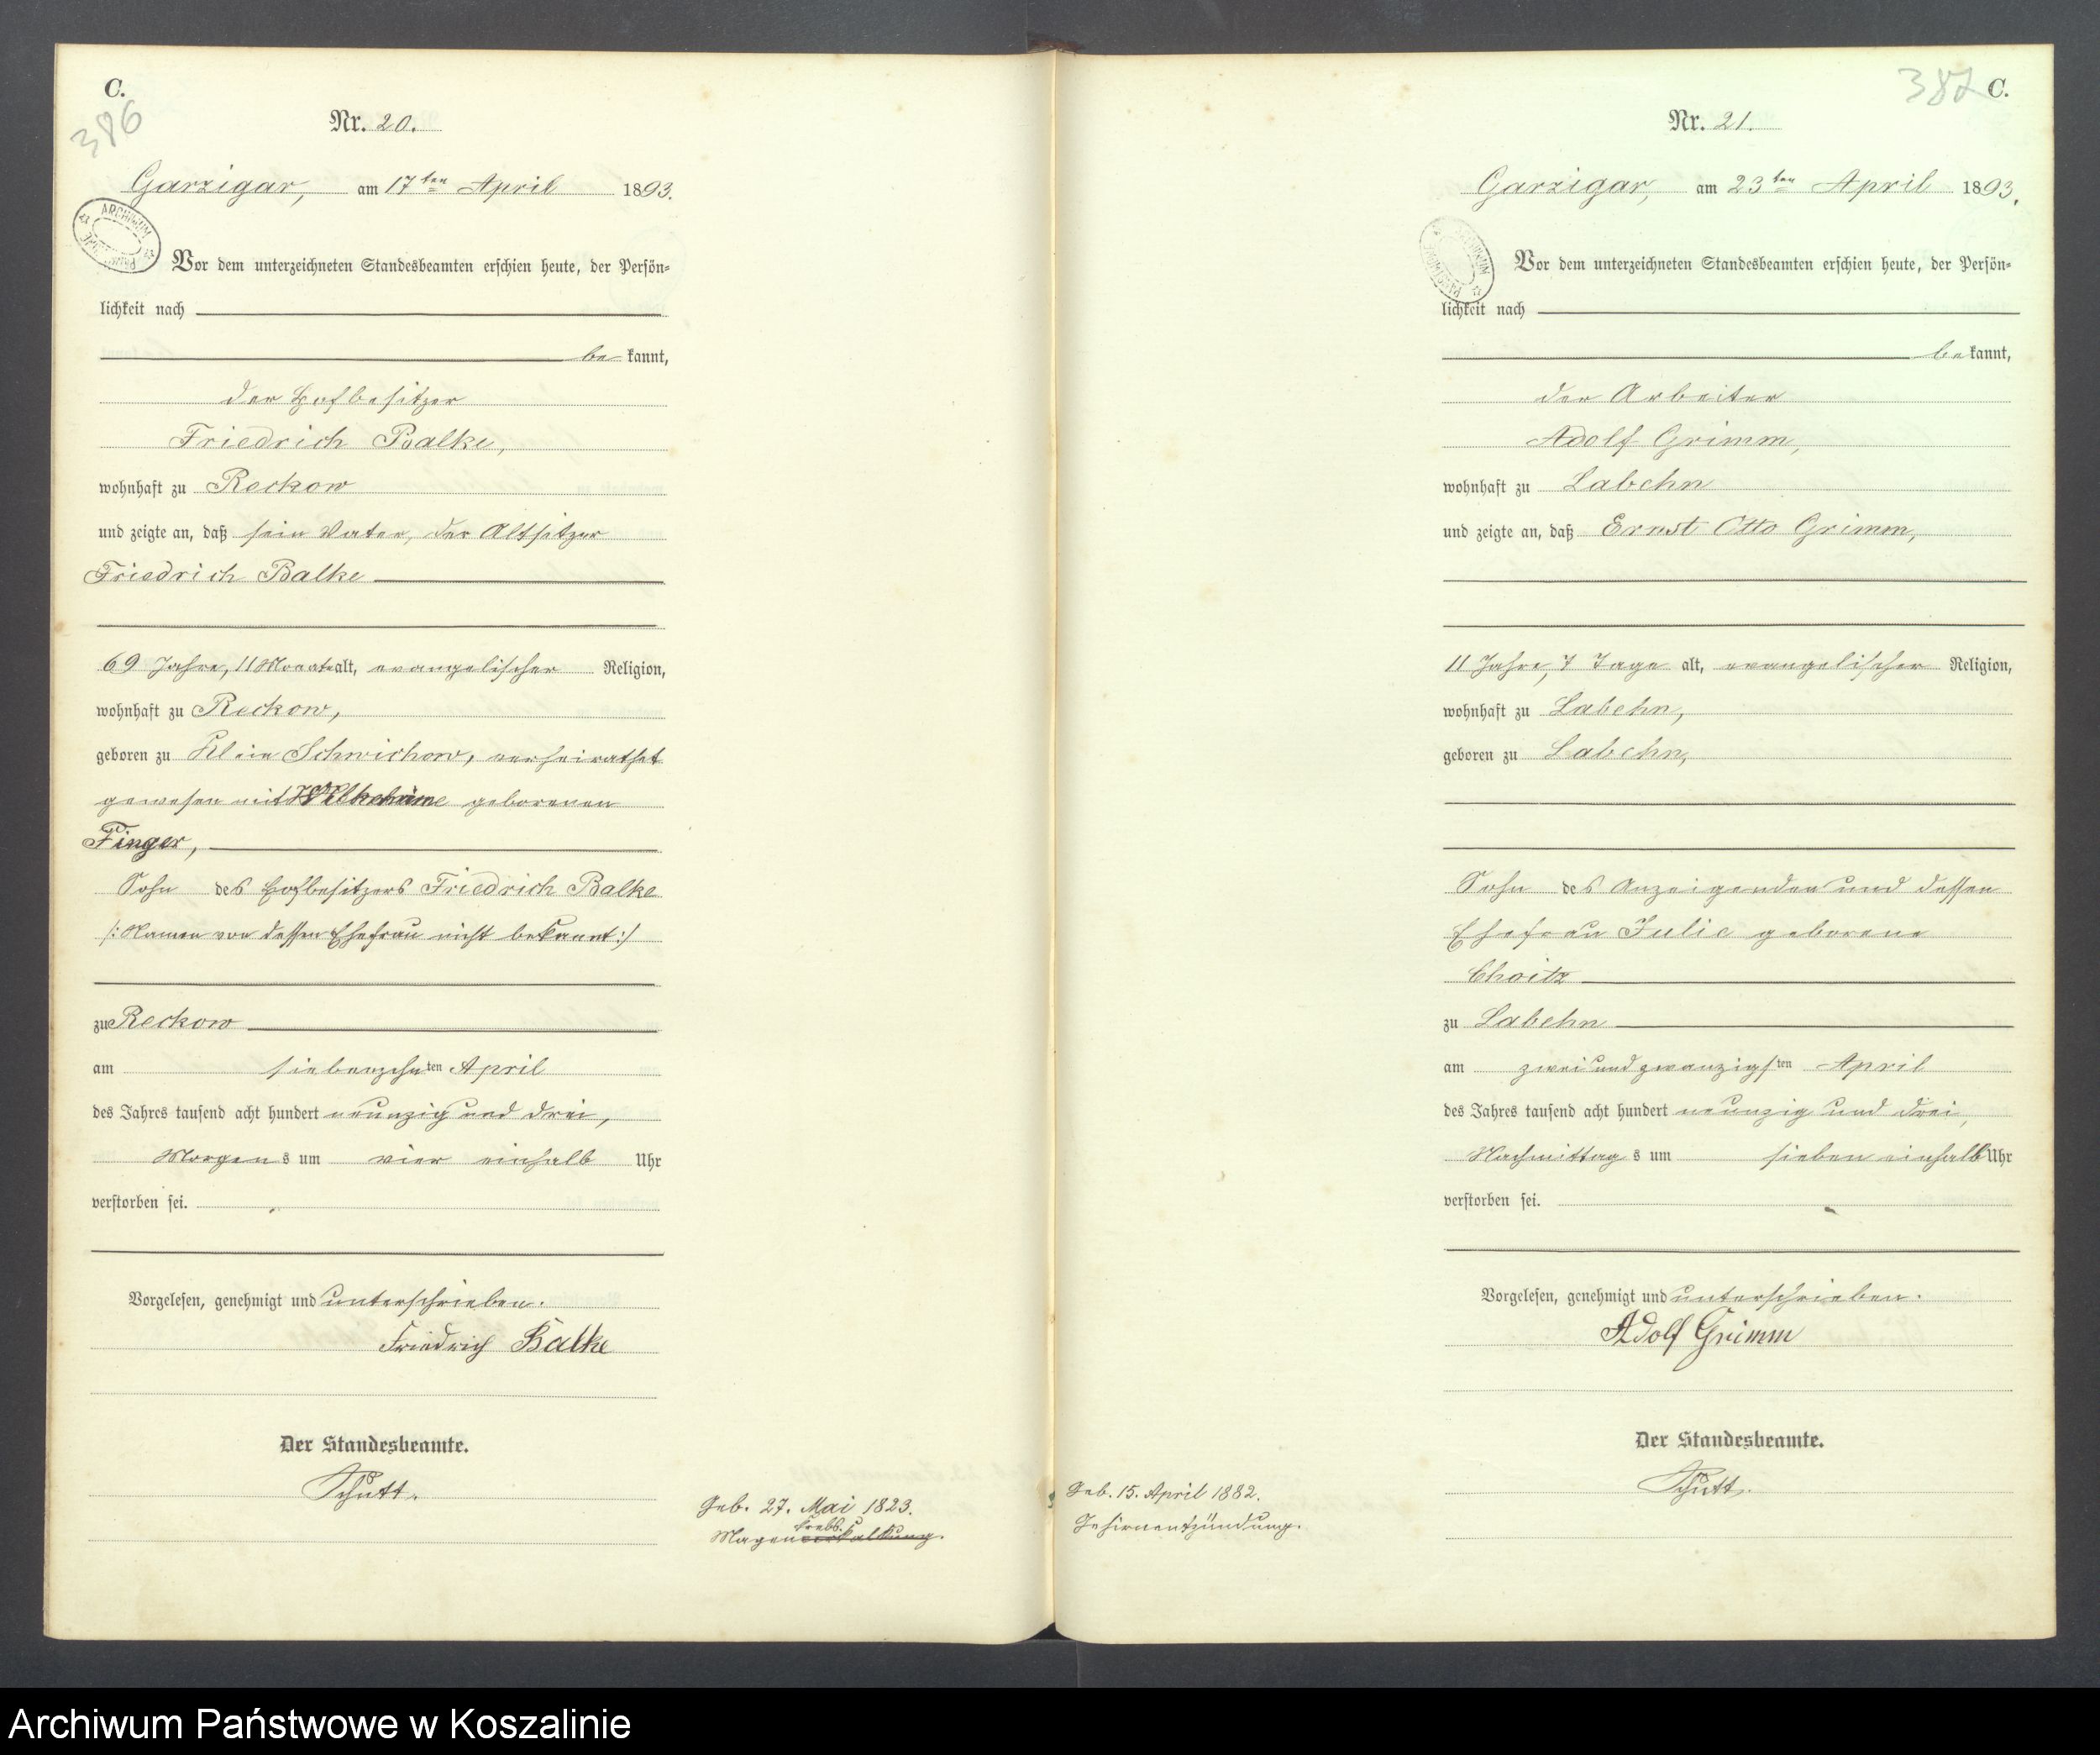 C.
386
Nr. 20.
Garzigar, am 17ten April 1893.
ARCHIWUM
Vor dem unterzeichneten Standesbeamten erschien heute, der Persön-
lichkeit nach
be kannt,
der Hofbesitzer
Friedrich Balke,
wohnhaft zu Reckow
und zeigte an, daß sein Vater, der Altsitzer
Friedrich Balke
69 Jahre, 11 Monate alt, evangelischer Religion,
wohnhaft zu Reckow,
geboren zu Klein Schwichow, verheirathet
gewesen mit geborenen
Finger,
Sohn des Hofbesitzers Friedrich Balke
/: Namen von dessen Ehefrau nicht bekannt :/
zu Reckow
am siebenzehnten April
des Jahres tausend acht hundert neunzig und drei,
Morgens um vier einhalb Uhr
verstorben sei.
Vorgelesen, genehmigt und unterschrieben.
Friedrich Balke
Der Standesbeamte.
Schütt.
Geb. 27. Mai 1823.
krebs.
Magenverkalkung.
382 C.
Nr. 21.
Garzigar, am 23ten April 1893.
ARCHIWUM PAŃSTWOWE
Vor dem unterzeichneten Standesbeamten erschien heute, der Persön-
lichkeit nach
be kannt,
der Arbeiter
Adolf Grimm,
wohnhaft zu Labehn
und zeigte an, daß Ernst Otto Grimm,
11 Jahre, 7 Tage alt, evangelischer Religion,
wohnhaft zu Labehn,
geboren zu Labehn,
Sohn des Anzeigenden und dessen
Ehefrau Julie geborene
Choitz
zu Labehn
am zwei und zwanzigsten April
des Jahres tausend acht hundert neunzig und drei,
Nachmittags um sieben einhalb Uhr
verstorben sei.
Vorgelesen, genehmigt und unterschrieben.
Adolf Grimm
Der Standesbeamte.
Schütt.
Geb. 15. April 1882.
Gehirnentzündung.
Archiwum Państwowe w Koszalinie